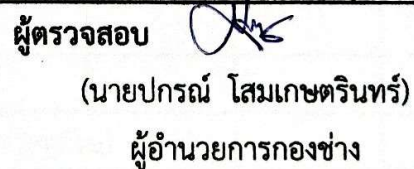 ผู้ตรวจสอบ
(นายปกรณ์ โสมเกษตรินทร์)
ผู้อำนวยการกองช่าง